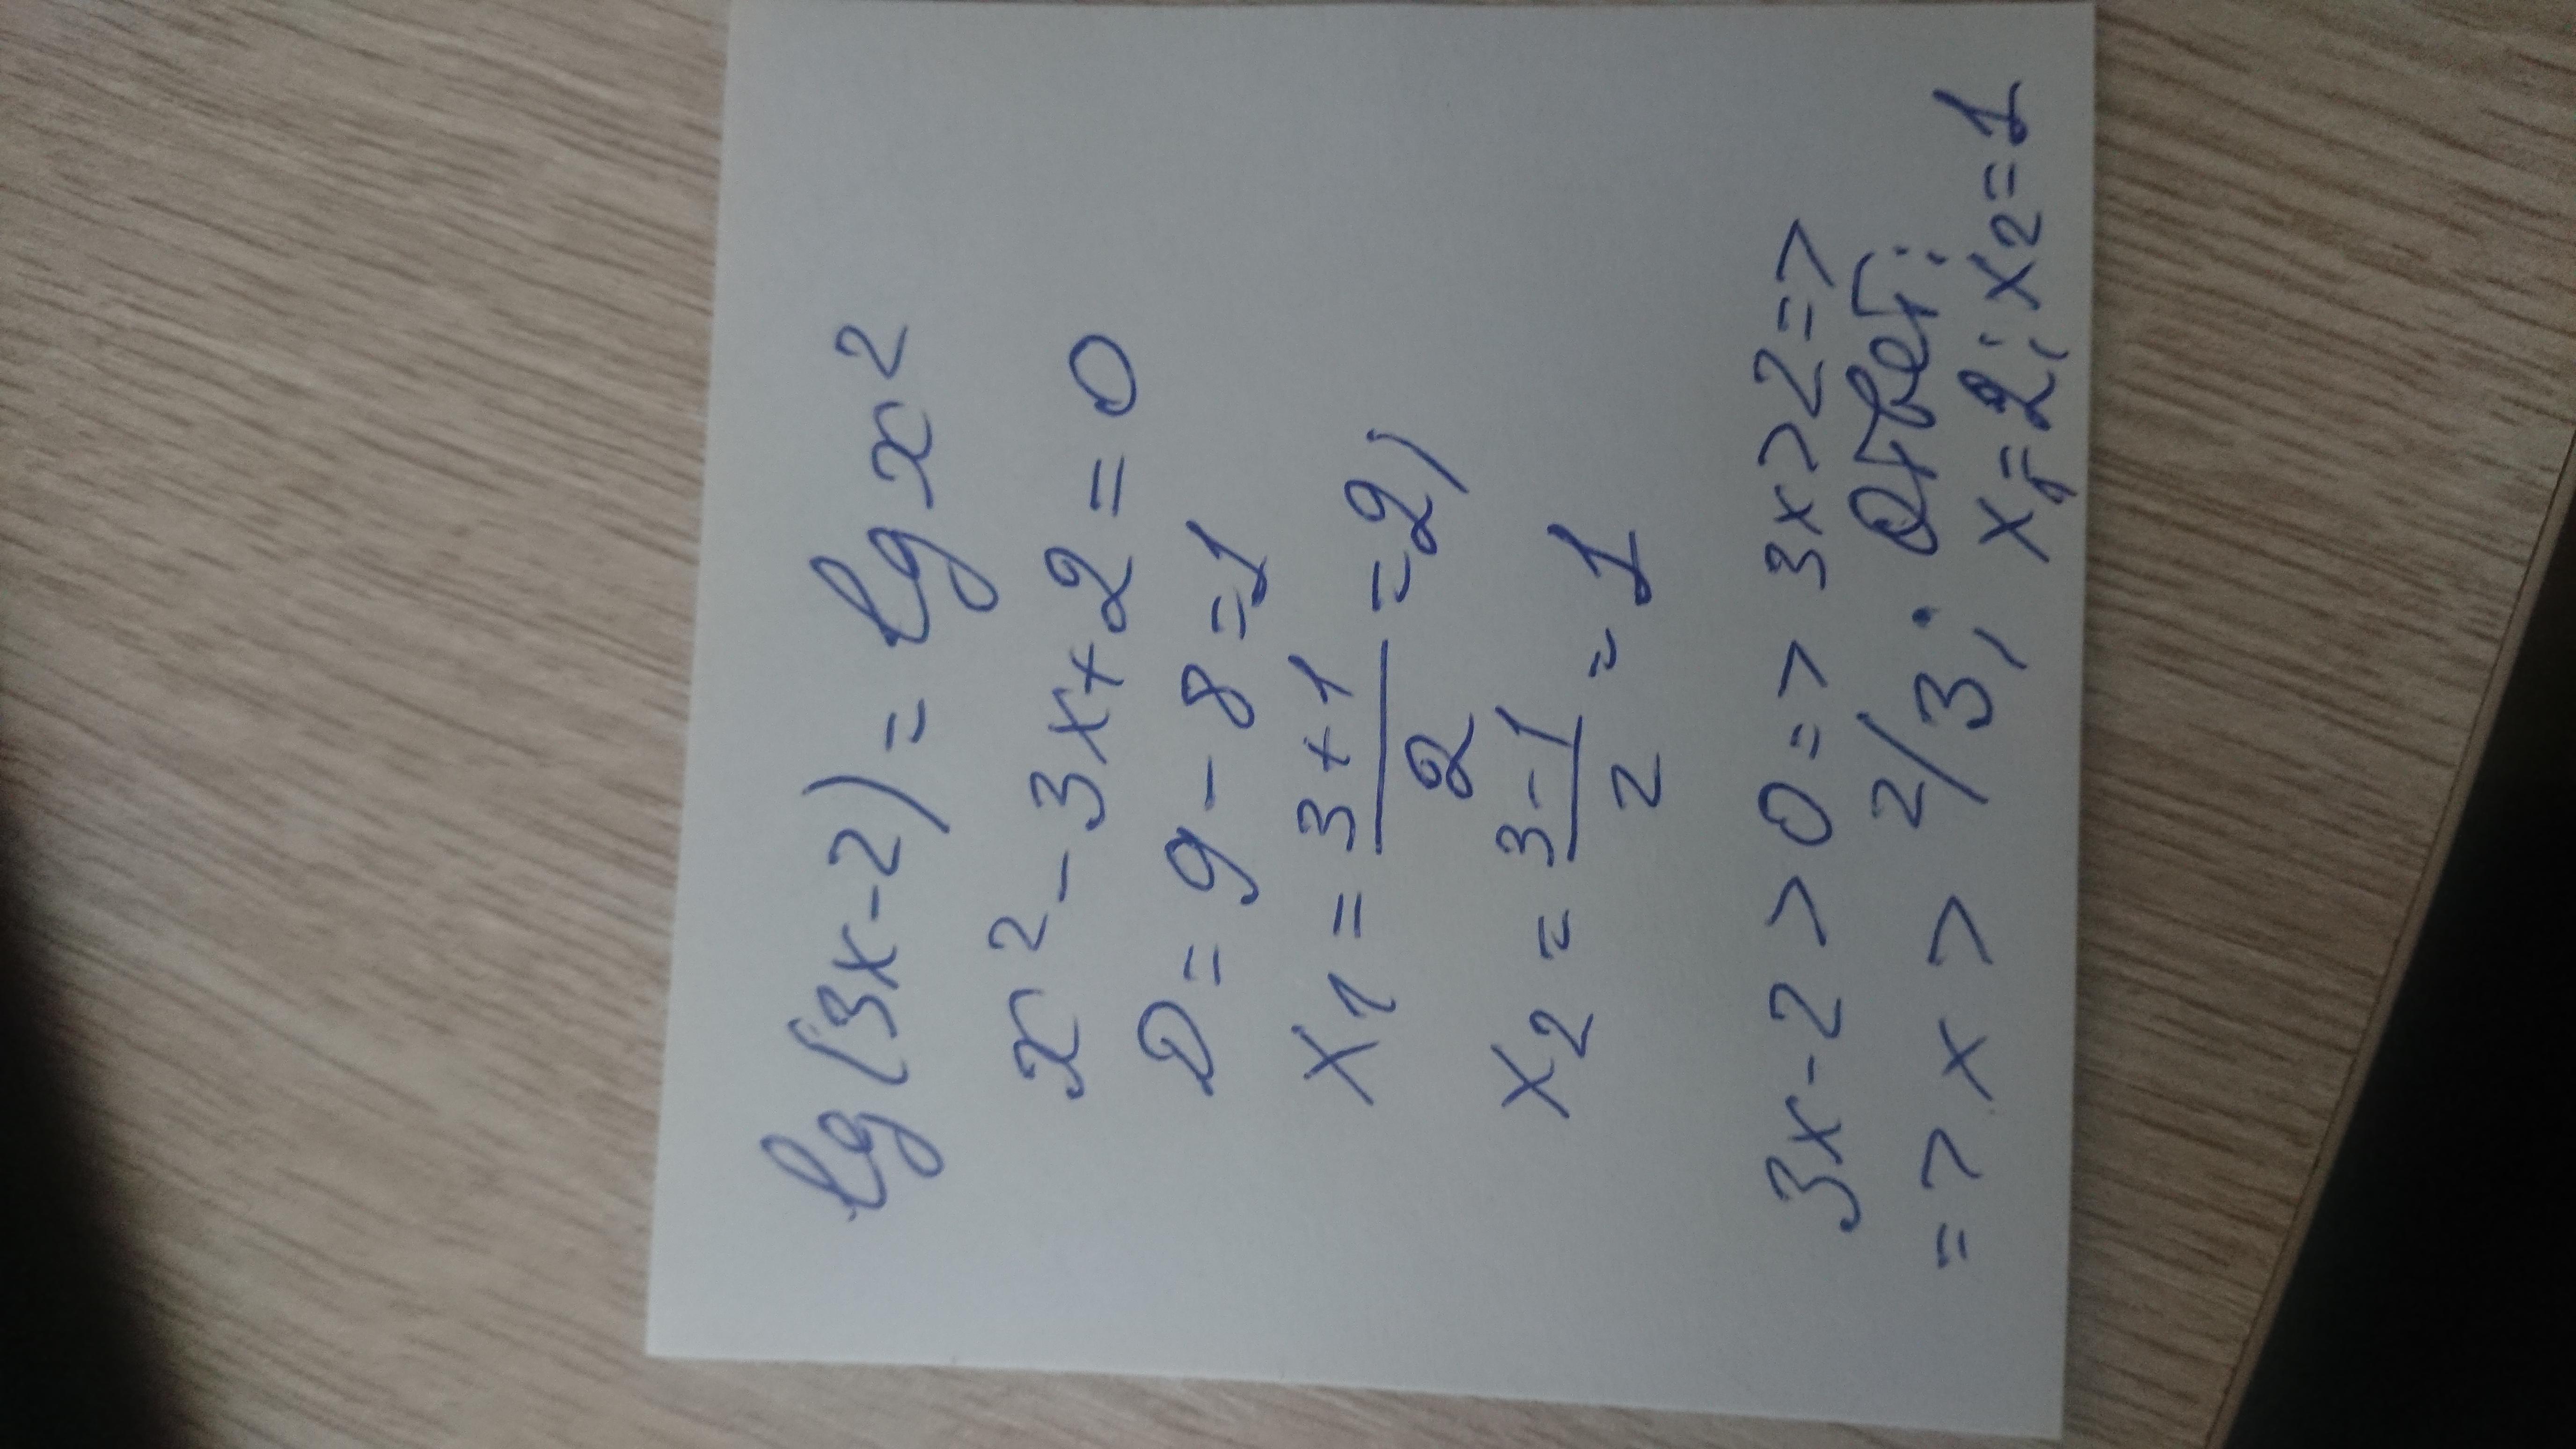 lg(3x-2) = lg x²
x² - 3x + 2 = 0
D = 9 - 8 = 1
x₁ = (3+1)/2 = 2;
x₂ = (3-1)/2 = 1
3x - 2 > 0 => 3x > 2 =>
=> x > 2/3; Ответ:
x₁ = 2; x₂ = 1